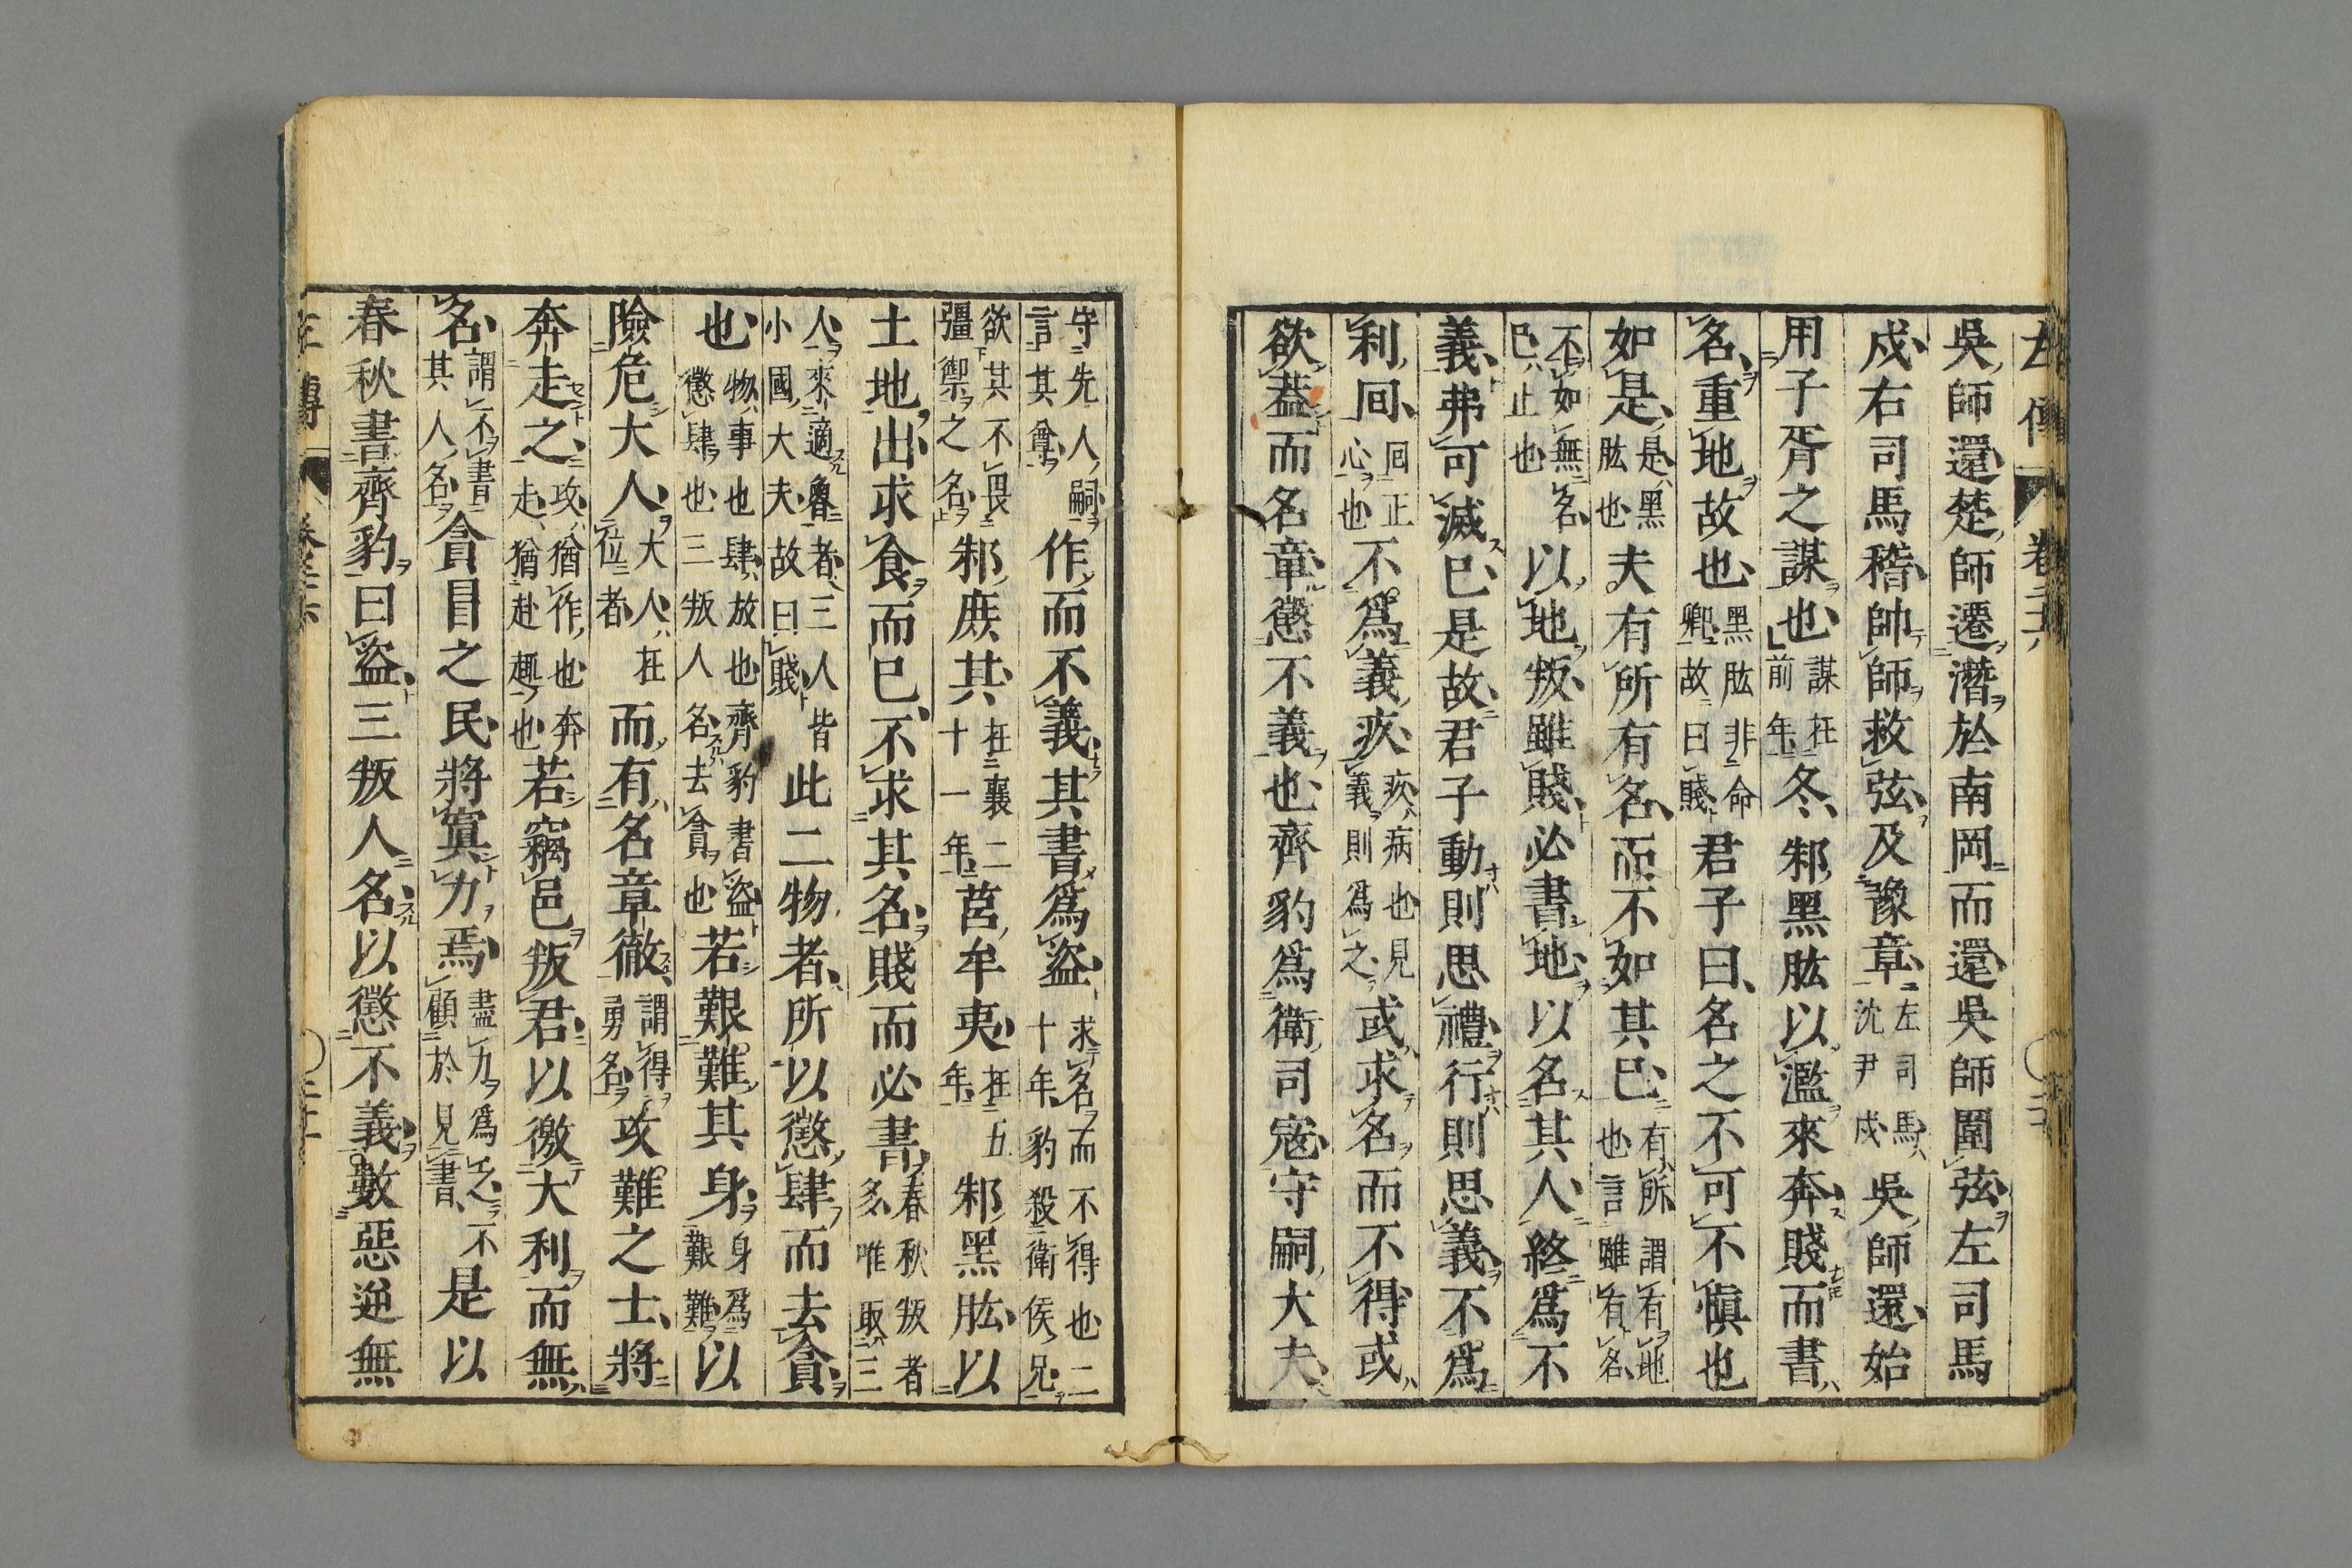 左傳 卷二十六
吳師還楚師遷潛於南岡而還吳師圍弦左司馬
戍右司馬稽帥師救弦及豫章左司馬沈尹戍吳師還始
用子胥之謀也謀在前年冬邾黑肱以濫來奔賤而書
名重地故也黑肱非命卿故曰賤君子曰名之不可不慎也
如是是黑肱也夫有所有名而不如其已有所謂有地也言雖有名
不如無名已止也以地叛雖賤必書地以名其人終爲不
義弗可滅已是故君子動則思禮行則思義不爲
利回回正心也不爲義疚疚病也見義則爲之或求名而不得或
欲蓋而名章懲不義也齊豹爲衛司寇守嗣大夫
守先人嗣言其尊作而不義其書爲盜求名而不得也二十年豹殺衛侯兄
欲其不畏彊禦之名邾庶其在襄二十一年莒牟夷在五年邾黑肱以
土地出求食而已不求其名賤而必書春秋叛者多唯取三
人來適魯者三人皆小國大夫故曰賤此二物者所以懲肆而去貪
也物事也肆放也齊豹書盜懲肆也三叛人名去貪也若艱難其身身爲艱難以
險危大人大人在位者而有名章徹謂得勇名攻難之士將
奔走之攻猶作也奔走猶赴趣也若竊邑叛君以徼大利而無
名謂不書其人名貪冒之民將寘力焉盡力爲之不顧於見書是以
春秋書齊豹曰盜三叛人名以懲不義數惡逆無